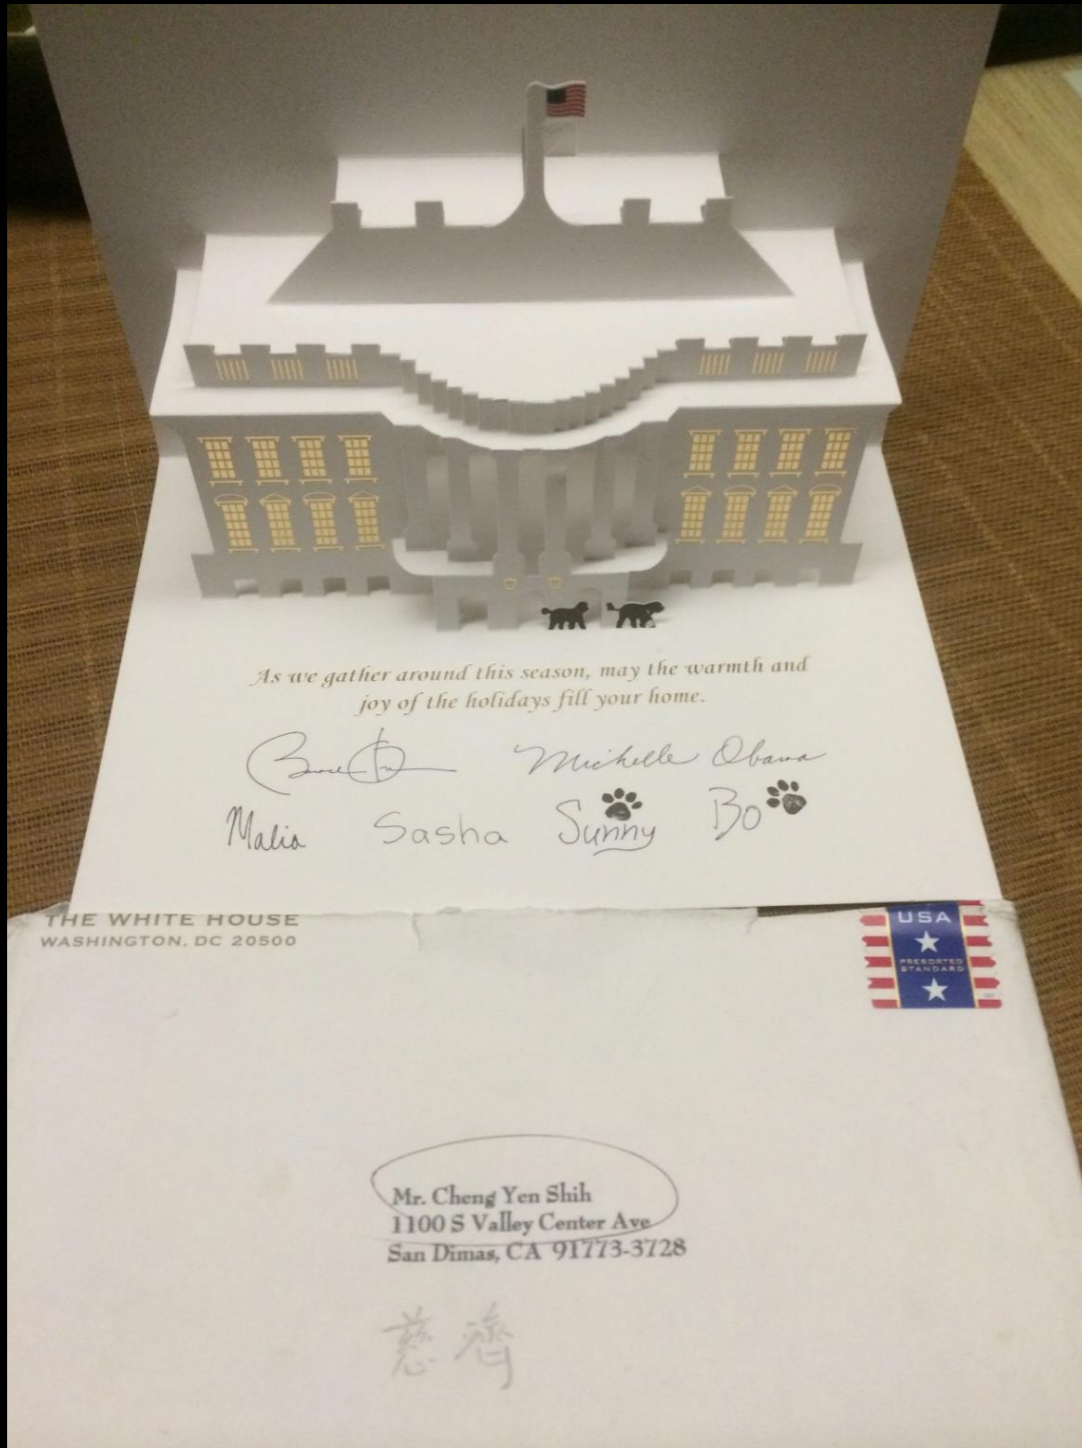 As we gather around this season, may the warmth and
joy of the holidays fill your home.
Michelle Obama
Malia Sasha Sunny Bo
THE WHITE HOUSE
WASHINGTON, DC 20500
USA
PRESORTED
STANDARD
Mr. Cheng Yen Shih
1100 S Valley Center Ave
San Dimas, CA 91773-3728
慈濟